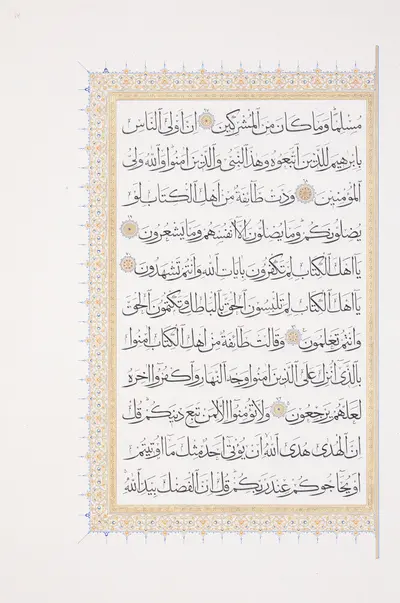 مُسْلِمًا وَمَا كَانَ مِنَ الْمُشْرِكِينَ إِنَّ أَوْلَى النَّاسِ
بِإِبْرَاهِيمَ لَلَّذِينَ اتَّبَعُوهُ وَهَذَا النَّبِيُّ وَالَّذِينَ آمَنُوا وَاللَّهُ وَلِيُّ
الْمُؤْمِنِينَ وَدَّتْ طَائِفَةٌ مِنْ أَهْلِ الْكِتَابِ لَوْ
يُضِلُّونَكُمْ وَمَا يُضِلُّونَ إِلَّا أَنْفُسَهُمْ وَمَا يَشْعُرُونَ
يَا أَهْلَ الْكِتَابِ لِمَ تَكْفُرُونَ بِآيَاتِ اللَّهِ وَأَنْتُمْ تَشْهَدُونَ
يَا أَهْلَ الْكِتَابِ لِمَ تَلْبِسُونَ الْحَقَّ بِالْبَاطِلِ وَتَكْتُمُونَ الْحَقَّ
وَأَنْتُمْ تَعْلَمُونَ وَقَالَتْ طَائِفَةٌ مِنْ أَهْلِ الْكِتَابِ آمِنُوا
بِالَّذِي أُنْزِلَ عَلَى الَّذِينَ آمَنُوا وَجْهَ النَّهَارِ وَاكْفُرُوا آخِرَهُ
لَعَلَّهُمْ يَرْجِعُونَ وَلَا تُؤْمِنُوا إِلَّا لِمَنْ تَبِعَ دِينَكُمْ قُلْ
إِنَّ الْهُدَى هُدَى اللَّهِ أَنْ يُؤْتَى أَحَدٌ مِثْلَ مَا أُوتِيتُمْ
أَوْ يُحَاجُّوكُمْ عِنْدَ رَبِّكُمْ قُلْ إِنَّ الْفَضْلَ بِيَدِ اللَّهِ